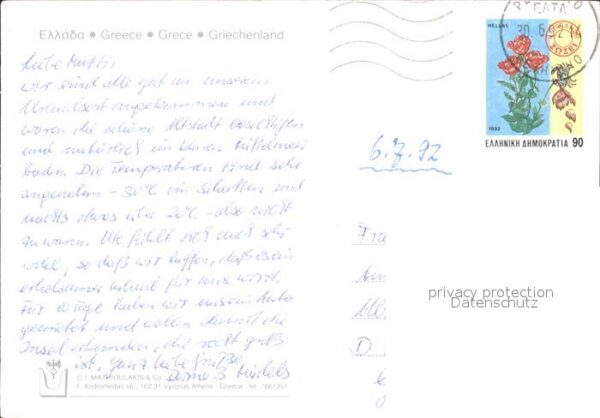 Ελλάδα • Greece • Grece • Griechenland
Liebe Mutti,
wir sind alle gut in unserem
Urlaubsort angekommen und
waren die schöne Altstadt besichtigen
und natürlich im klaren
baden. Die Temperaturen sind sehr
angenehm - 30°C im Schatten und
nachts etwas über 20°C - also nicht
zu warm. Ute fühlt sich auch sehr
wohl, so daß wir hoffen, daß es ein
erholsamer Urlaub für uns wird.
Für 2 Tage haben wir uns ein Auto
gemietet und wollen damit die
Insel erkunden, die nicht groß
ist. Ganz liebe Grüße
© I. MATHIOULAKIS & Co
1, Andromedas st., 162 31 Vyronas Athens - Greece - Tel. 7661351
HELLAS
1992
ΕΛΛΗΝΙΚΗ ΔΗΜΟΚΡΑΤΙΑ 90
30. 6. 92 14
6.7.92
Fra
privacy protection
Datenschutz
D